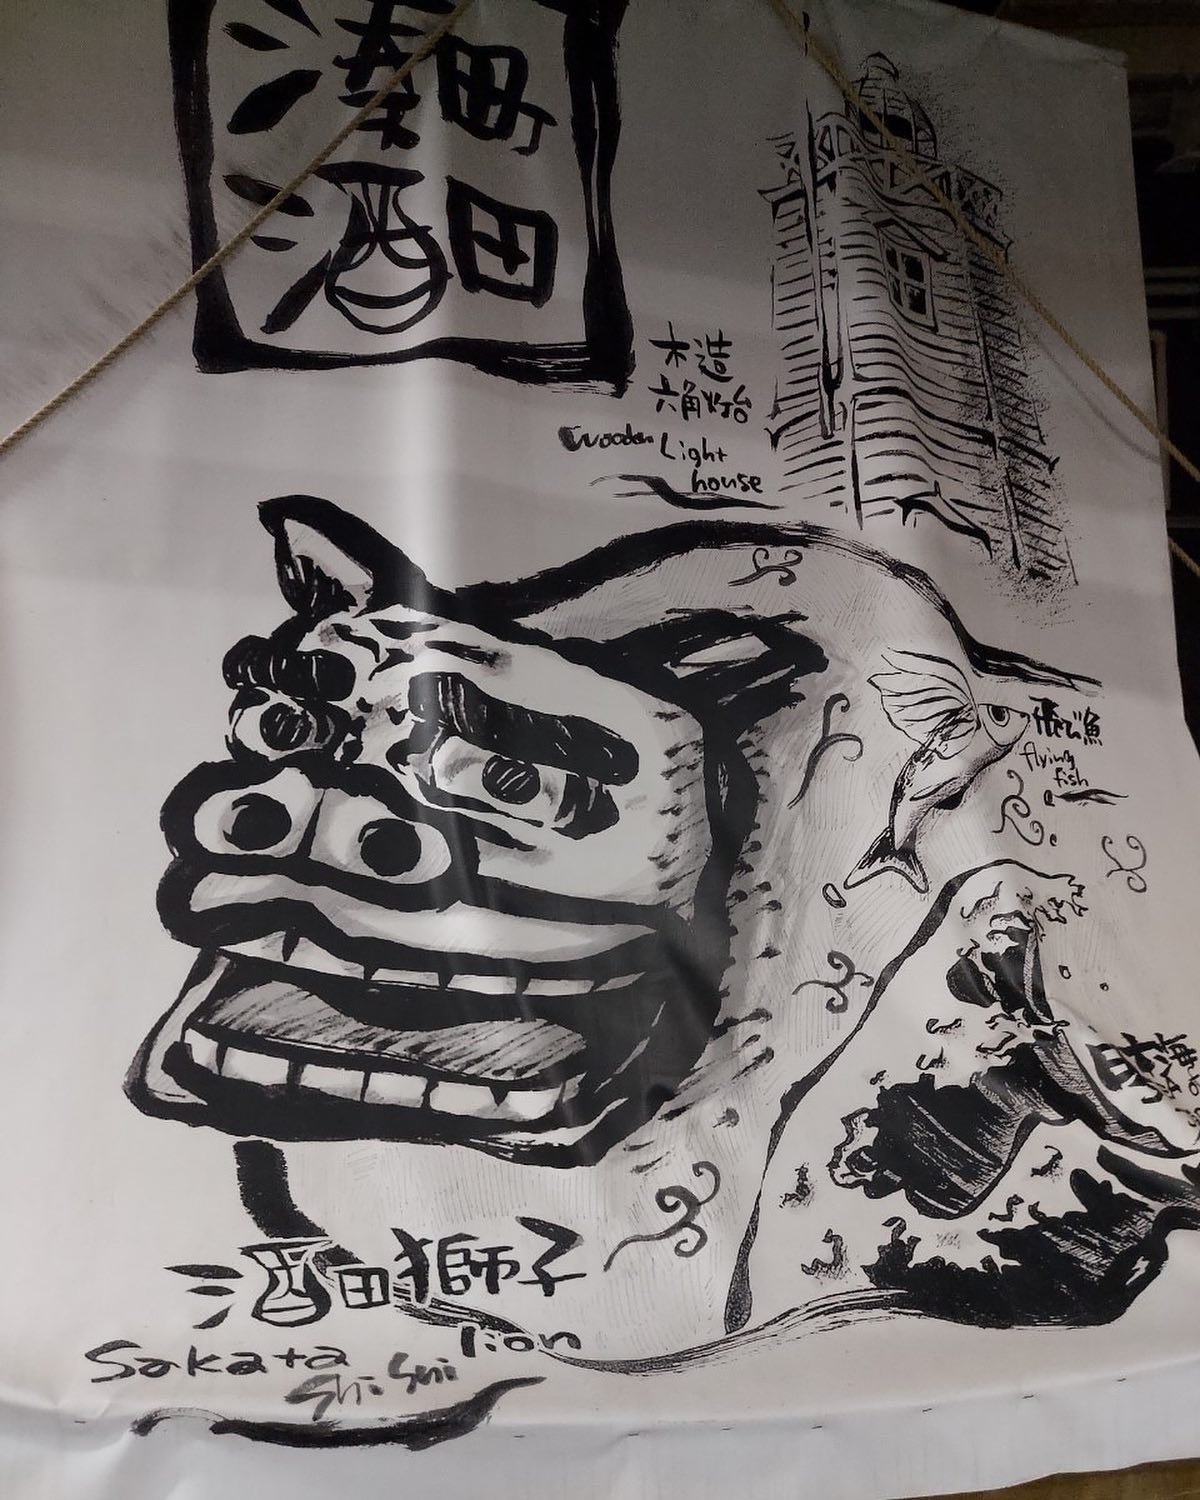 湊町
酒田
木造
六角灯台
wooden
Light
house
飛び魚
flying
fish
酒田獅子
Sakata
Shishi
lion